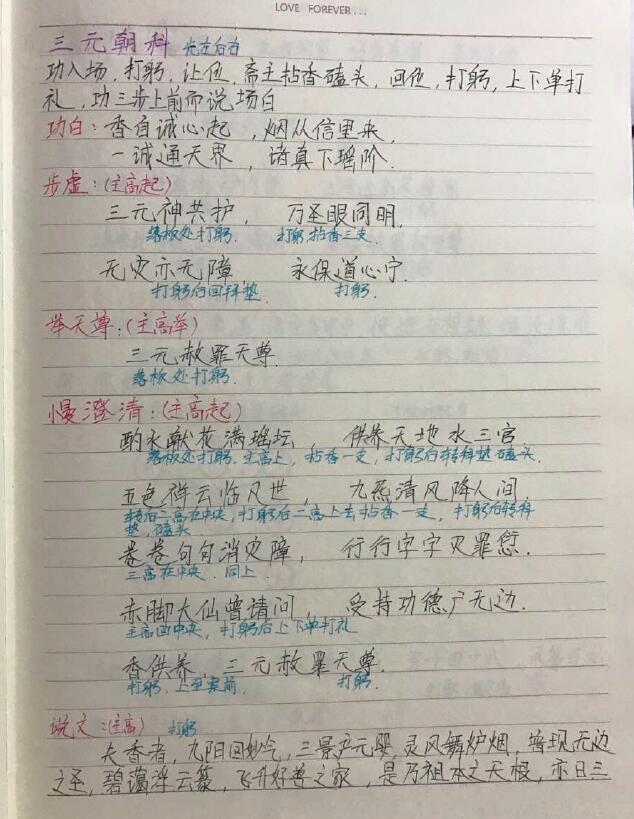 LOVE FOREVER...
三元朝科 先左后右
功入场,打躬,让位,斋主拈香磕头,回位,打躬,上下单打
礼,功三步上前而说场白
功白:香自诚心起,烟从信里来,
一诚通天界,诸真下瑶阶.
步虚:(主高起)
三元神共护, 万圣眼同明,
落板处打躬. 打躬,拈香三支.
无灾亦无障 永保道心宁.
打躬后回拜垫. 打躬.
举天尊:(主高举)
三元赦罪天尊.
落板处打躬.
慢澄清:(主高起)
酌水献花满瑶坛, 供养天地水三官
落板处打躬.主高上,拈香一支,打躬后转拜垫磕头.
五色祥云临凡世, 九炁清风降人间.
转后二高在中央,打躬后二高上去拈香一支,打躬后转拜
垫,磕头
卷卷句句消灾障, 行行字字灭罪愆.
三高在中央.同上.
赤脚大仙曾请问, 受持功德广无边.
主高回中央,打躬后上下单打礼
香供养 三元赦罪天尊.
打躬.上至案前. 打躬.
说文:(主高) 打躬
夫香者,九阳回妙气,三景产元婴,灵风舞炉烟,普现无边
之圣,碧蔼浮云篆,飞升好善之家,是乃祖本之天极,亦曰三